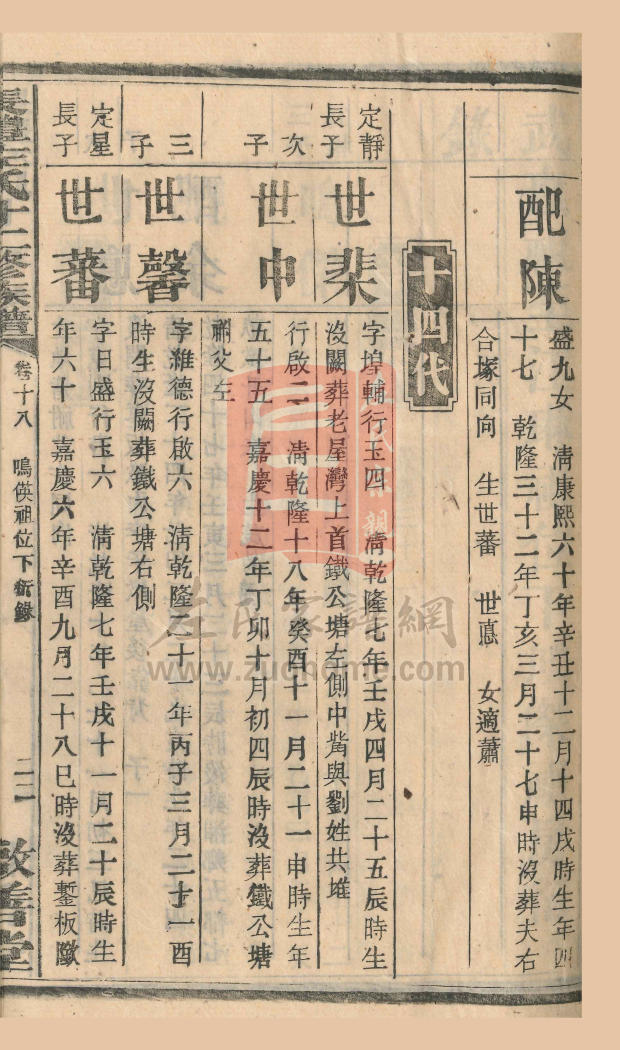 配陳
盛九女　清康熙六十年辛丑十二月十四戌時生年四
十七　乾隆三十二年丁亥三月二十七申時沒葬夫右
合塚同向　生世蕃　世惪　女適蕭
十四代
定靜
長子
世棐
字堭輔行玉四　清乾隆七年壬戌四月二十五辰時生
沒闕葬老屋灣上首鐵公塘左側中嘴與劉姓共堆
次
子
世中
行啟二　清乾隆十八年癸酉十一月二十一申時生年
五十五　嘉慶十二年丁卯十月初四辰時沒葬鐵公塘
祔父左
三
子
世馨
字維德行啟六　清乾隆二十一年丙子三月二十一酉
時生沒闕葬鐵公塘右側
定星
長子
世蕃
字日盛行玉六　清乾隆七年壬戌十一月二十辰時生
年六十　嘉慶六年辛酉九月二十八巳時沒葬塹板
長豐左氏十二修族譜
卷十八　鳴僙祖位下衍錄
二二
敦善堂
左氏家譜網
www.zuohome.com